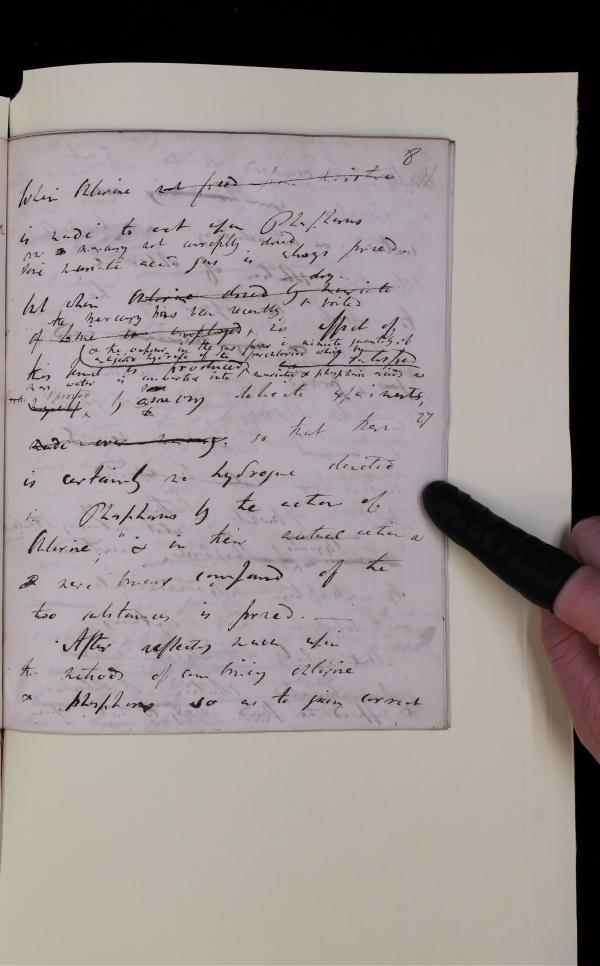 8
When Chlorine not freed from moisture
is made to act upon Phosphorus
over mercury not carefully dried
some muriatic acid gas is always formed.
but when Chlorine dried by muriate
dry
the mercury has been recently boiled
of lime is employed, no effect of
& the vapour in the gas from a minute quantity of
hydrate of the perchloride which by
this kind is produced
more water is converted into muriatic & phosphoric acids as
I proved by some very delicate experiments,
27
made over mercury, so that there
is certainly no hydrogene detected
in Phosphorus by the action of
Chlorine, & in their mutual action a
mere binary compound of the
two substances is formed. —
After reflecting much upon
the methods of combining chlorine
& phosphorus so as to gain correct